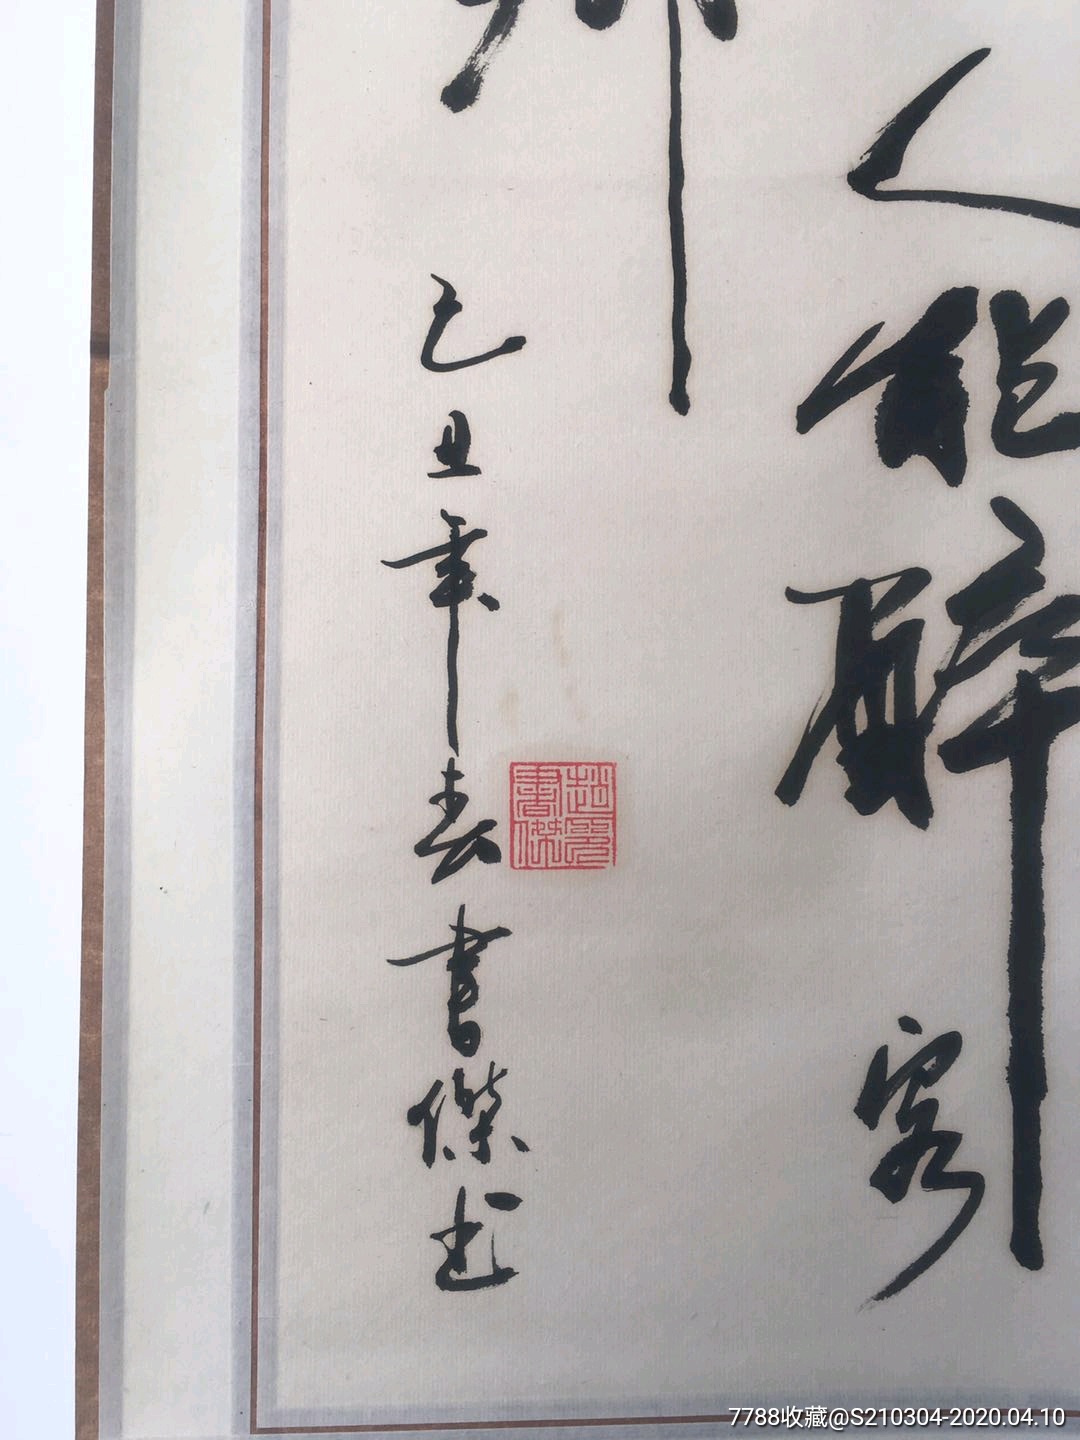 人能醉客
己丑年春書傑书
趙
書傑
7788收藏@S210304-2020.04.10